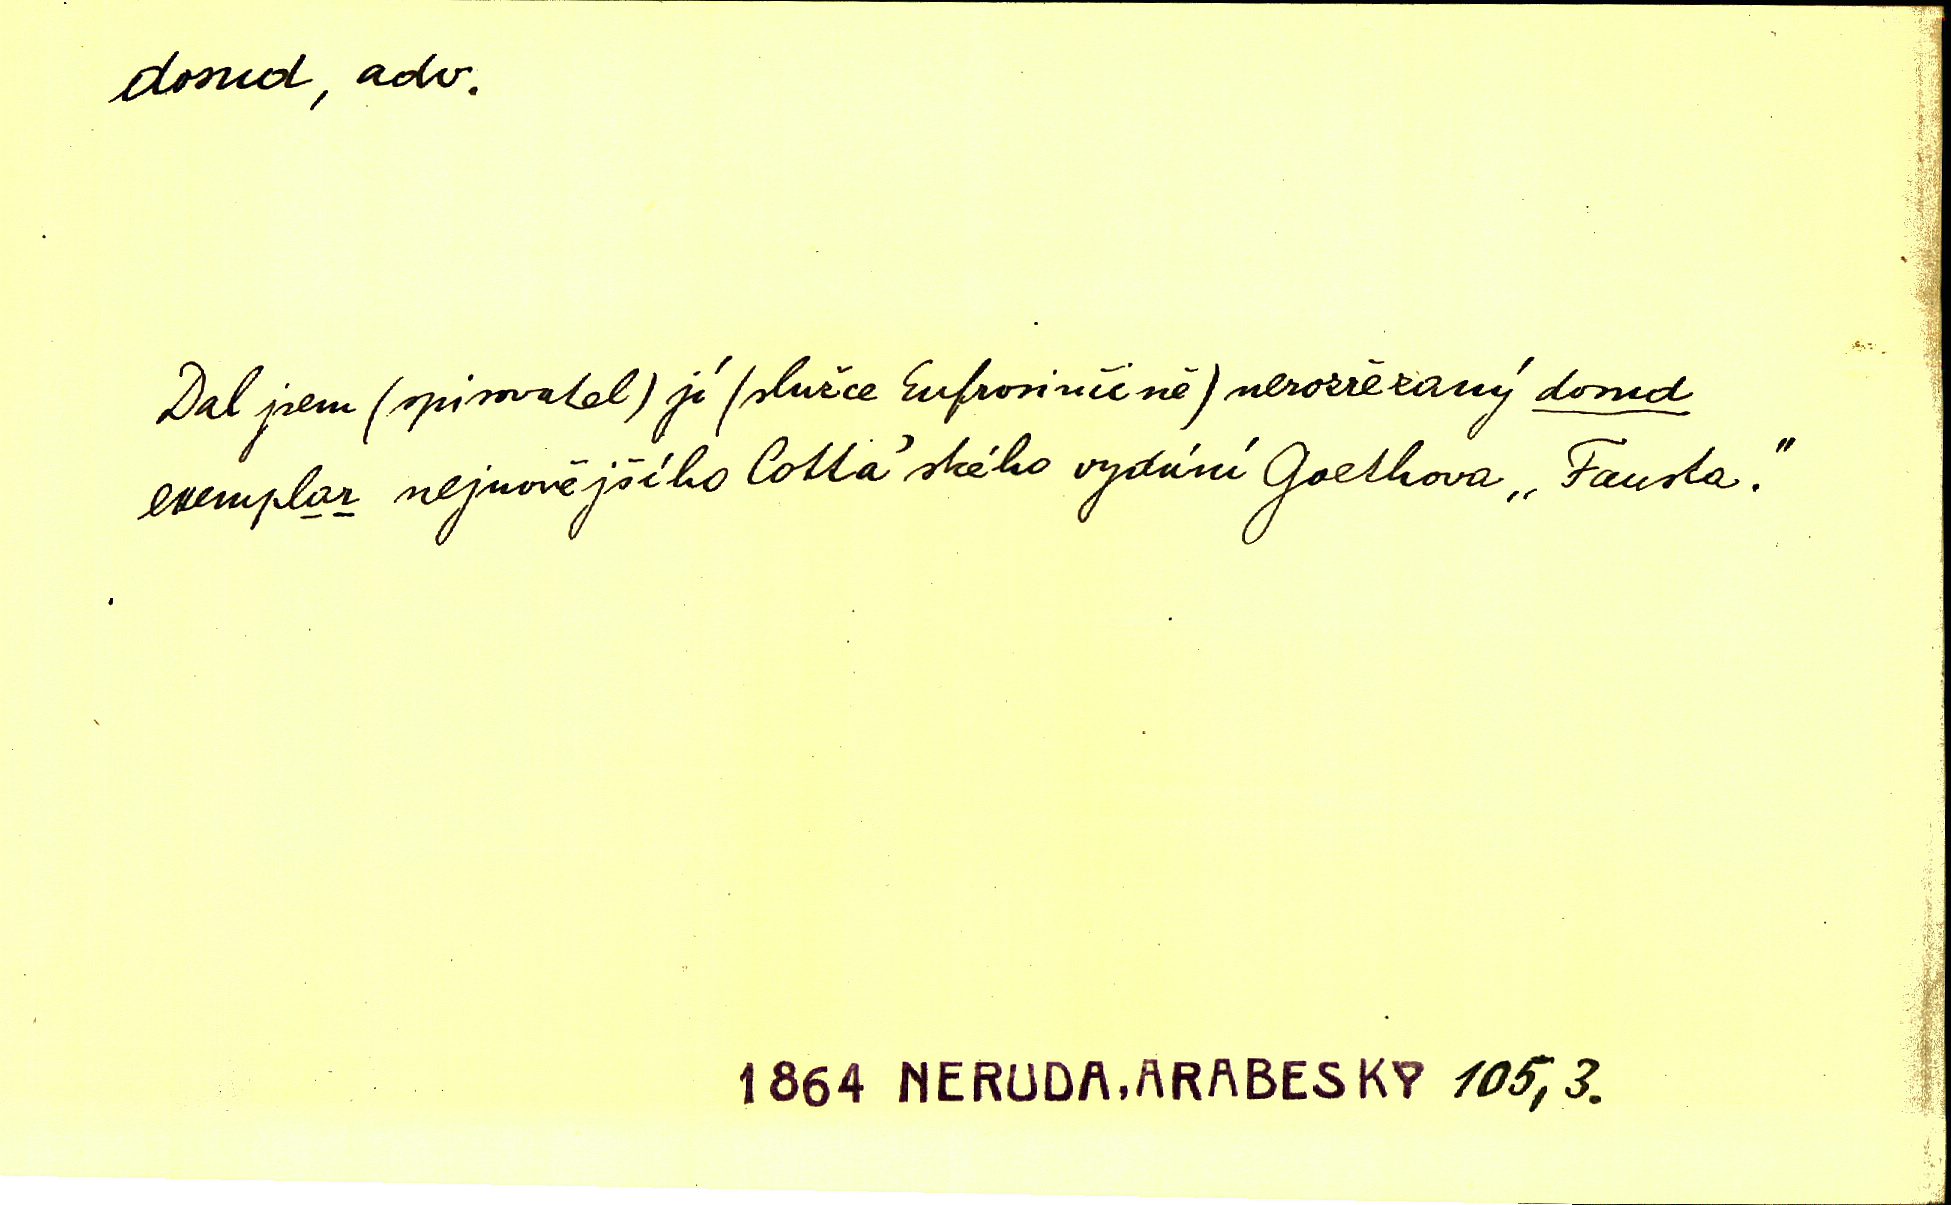 dosud, adv.
Dal jsem (spisovatel) jí (služce Eufrosinčině) nerozřězaný dosud
exemplar nejnovějšího Cotta'ského vydání Goethova „Fausta."
1864 NERUDA, ARABESKY 105,3.